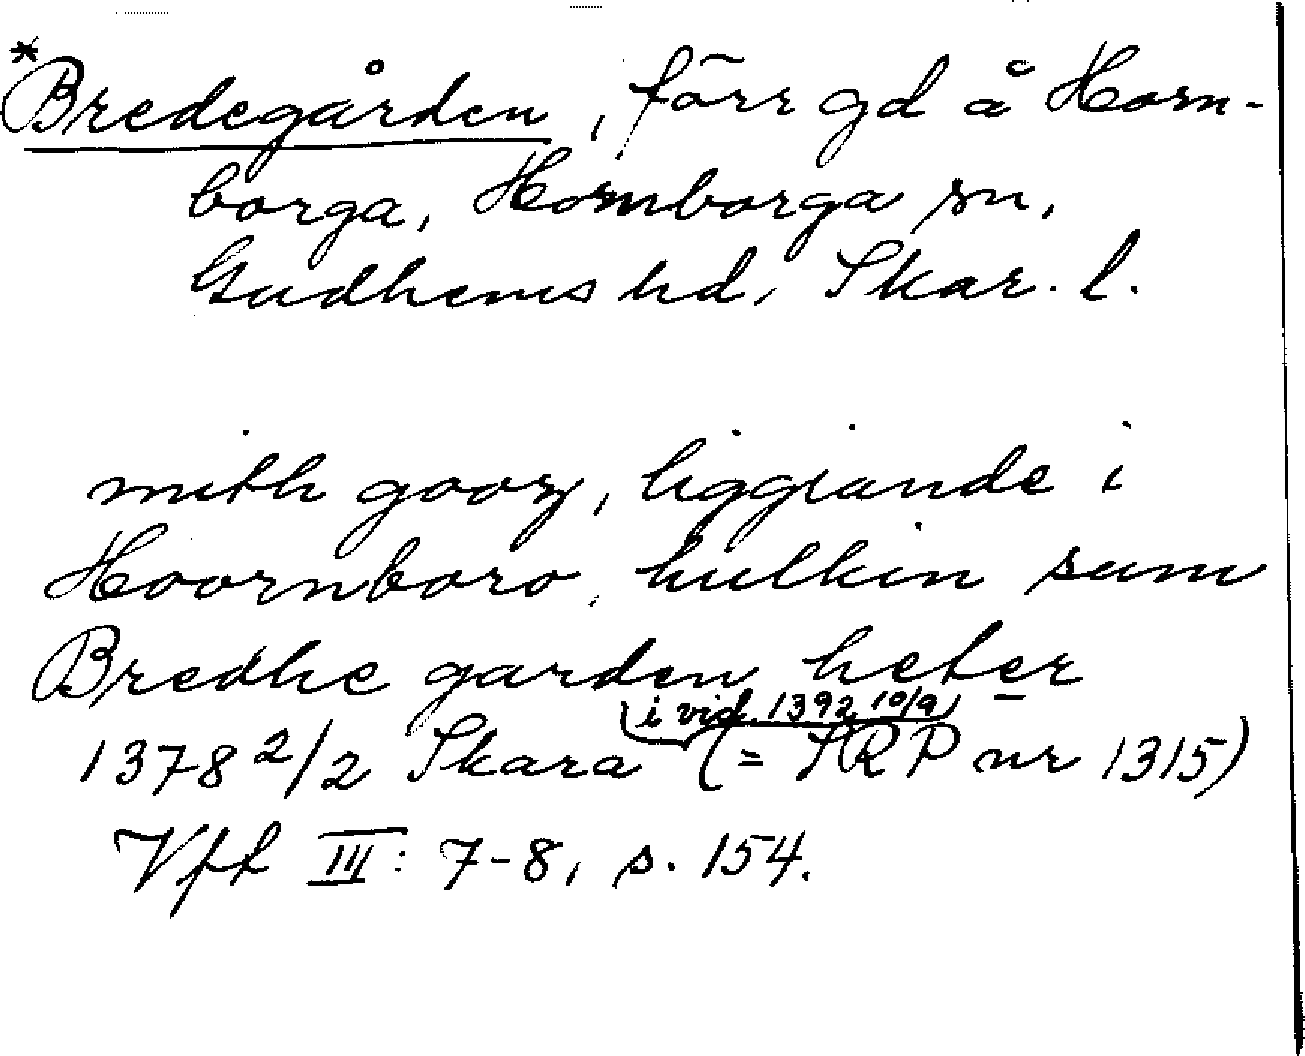 *Bredegården, förr gd å Horn-
borga, Hornborga sn,
Gudhems hd, Skar. l.
mith gooz, liggiande i
Hoornboro, hulkin sum
Bredhe garden heter
i vid. 1392 10/9
1378 2/2 Skara (= SRP nr 1315)
Vff III: 7-8, s. 154.